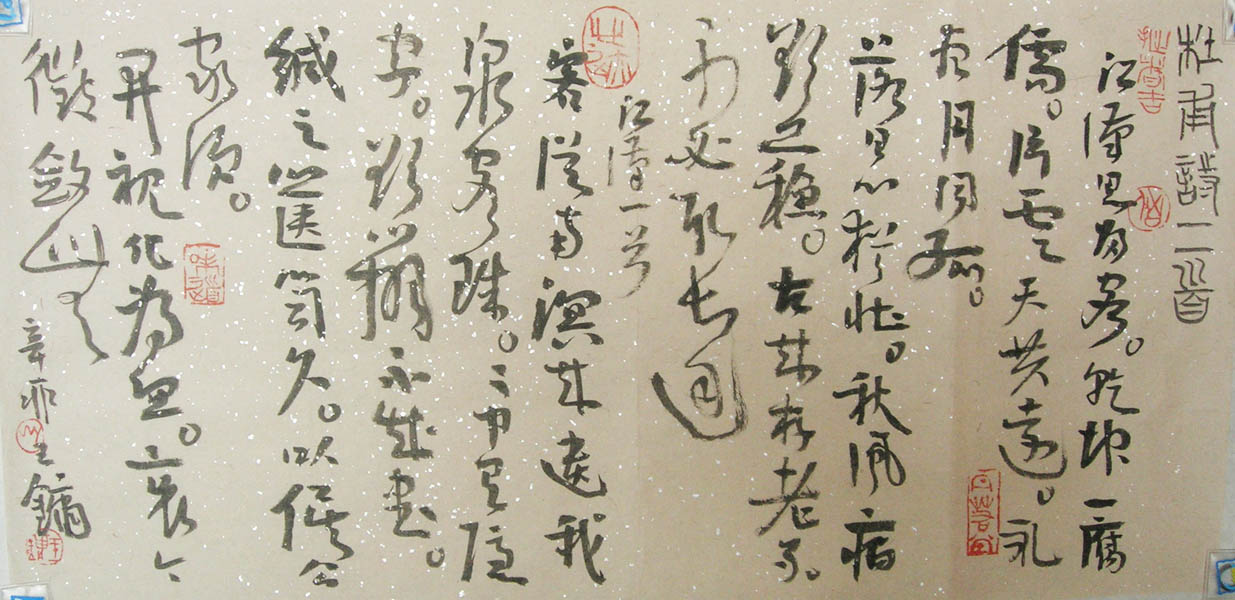 杜甫詩二首
江漢思歸客。乾坤一腐
儒。片雲天共遠。永
夜月同孤。
落日心猶壯。秋風病
欲蘇。古來存老馬。
不必取長途
江漢一首
客從南溟來遺我
泉客珠。〻中有隱
字。欲辨不成書。
緘之篋笥久。以俟公
家須。
開視化為血。哀今
徵斂無
之鏞